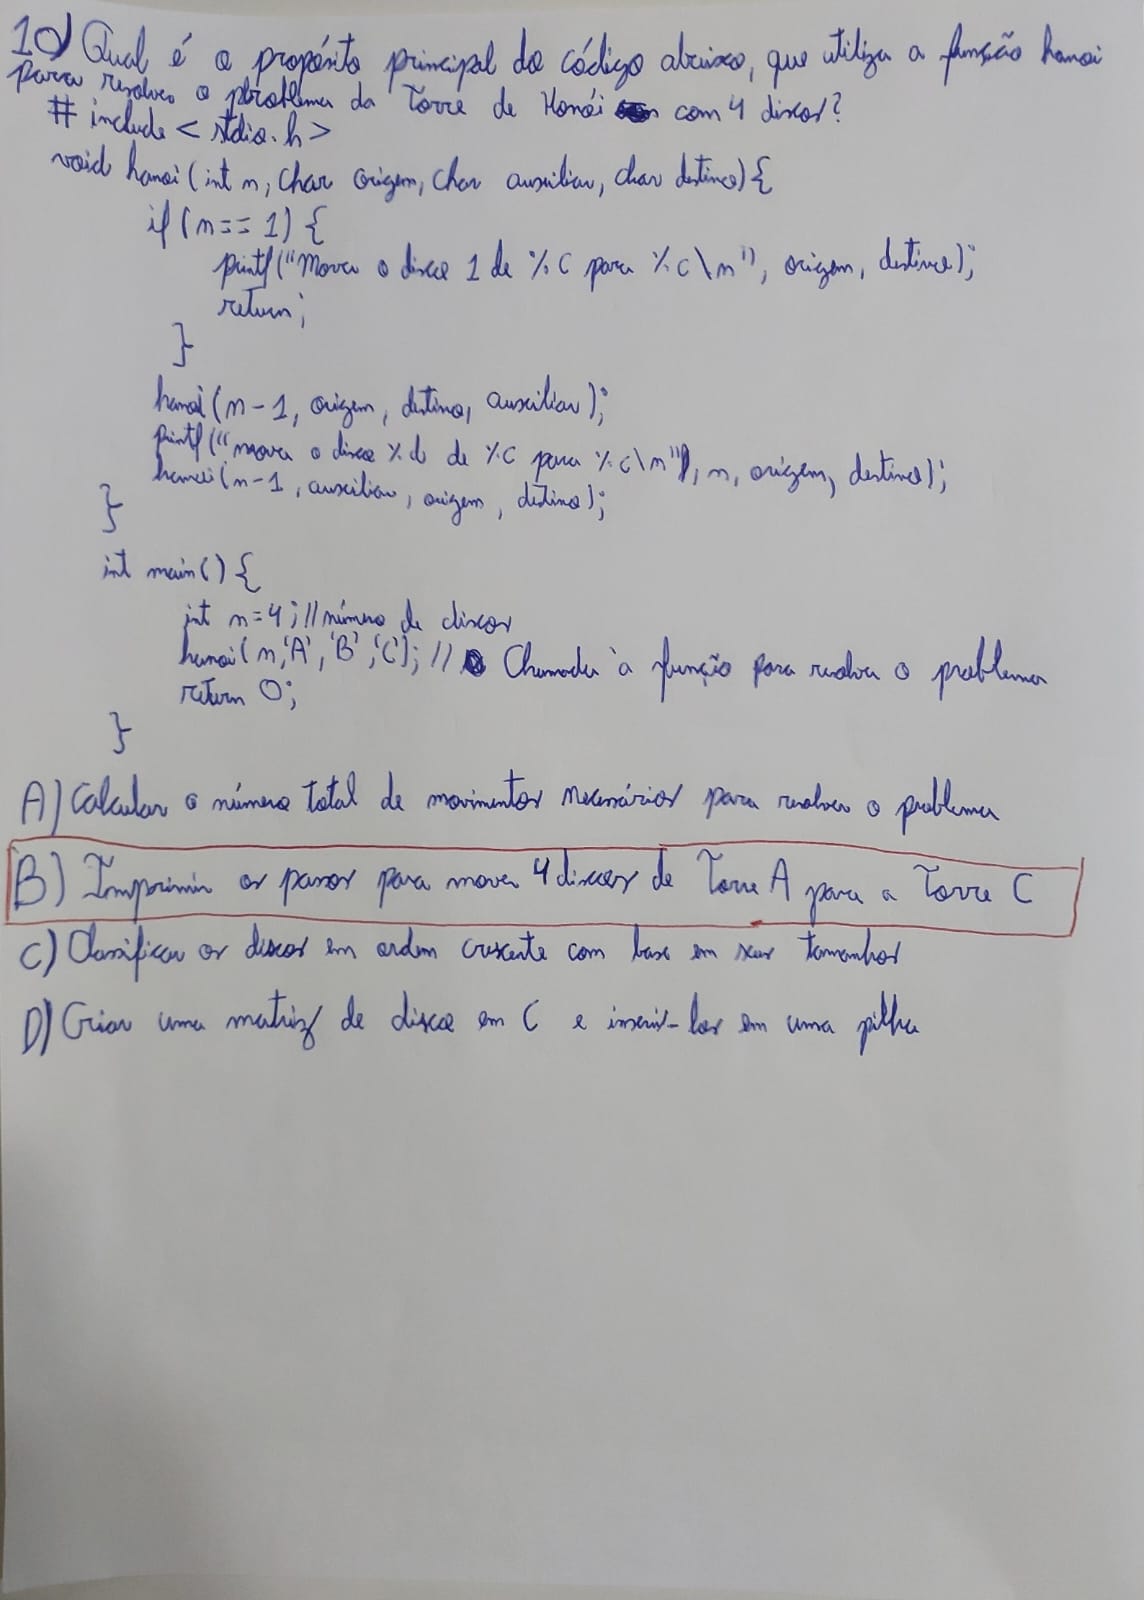 10) Qual é o propósito principal do código abaixo, que utiliza a função hanoi
para resolver o problema da Torre de Hanói com 4 discos?
# include < stdio.h >
void hanoi (int n, char origem, char auxiliar, char destino) {
if (n == 1) {
printf("Mova o disco 1 de %c para %c\n"), origem, destino);
return;
}
hanoi (n - 1, origem, destino, auxiliar);
printf ("mova o disco %d de %c para %c\n"), n, origem, destino);
hanoi (n-1, auxiliar, origem, destino);
}
int main() {
int n=4; // número de discos
hanoi (n,'A', 'B', 'C'); // Chamada à função para resolver o problema
return 0;
}
A) Calcular o número total de movimentos necessários para resolver o problema
B) Imprimir os passos para mover 4 discos de Torre A para a Torre C
C) Classificar os discos em ordem crescente com base em seus tamanhos
D) Criar uma matriz de disco em C e inserir-los em uma pilha